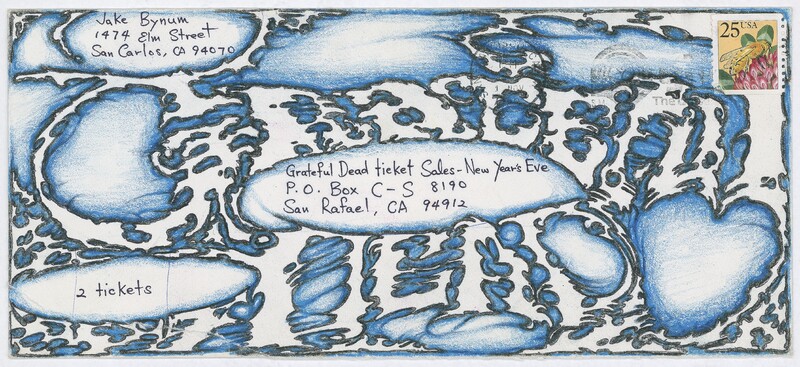 Jake Bynum
1474 Elm Street
San Carlos, CA 94070
25USA
Grateful Dead ticket Sales-New Year's Eve
P.O. Box C-S 8190
San Rafael, CA 94912
2 tickets